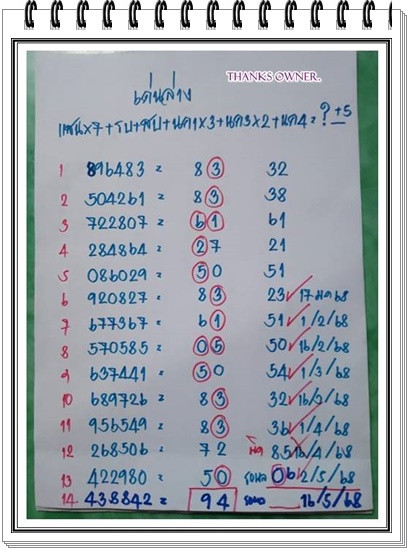 THANKS OWNER.
เด่นล่าง
แสน×7+รบ+สบ+นค1×3+นค3×2+นค4=? +5
1 896483 = 83 32
2 504261 = 83 38
3 722807 = 61 61
4 284864 = 27 21
5 086029 = 50 51
6 920827 = 83 23✓17 มค 68
7 677367 = 61 51✓1/2/68
8 570585 = 05 50✓16/2/68
9 637441 = 50 54✓1/3/68
10 689726 = 83 32✓16/3/68
11 956549 = 83 36✓1/4/68
12 268506 = 72 ผิด 85 16/4/68
13 422980 = 50 06 2/5/68
14 438842 = 94 16/5/68